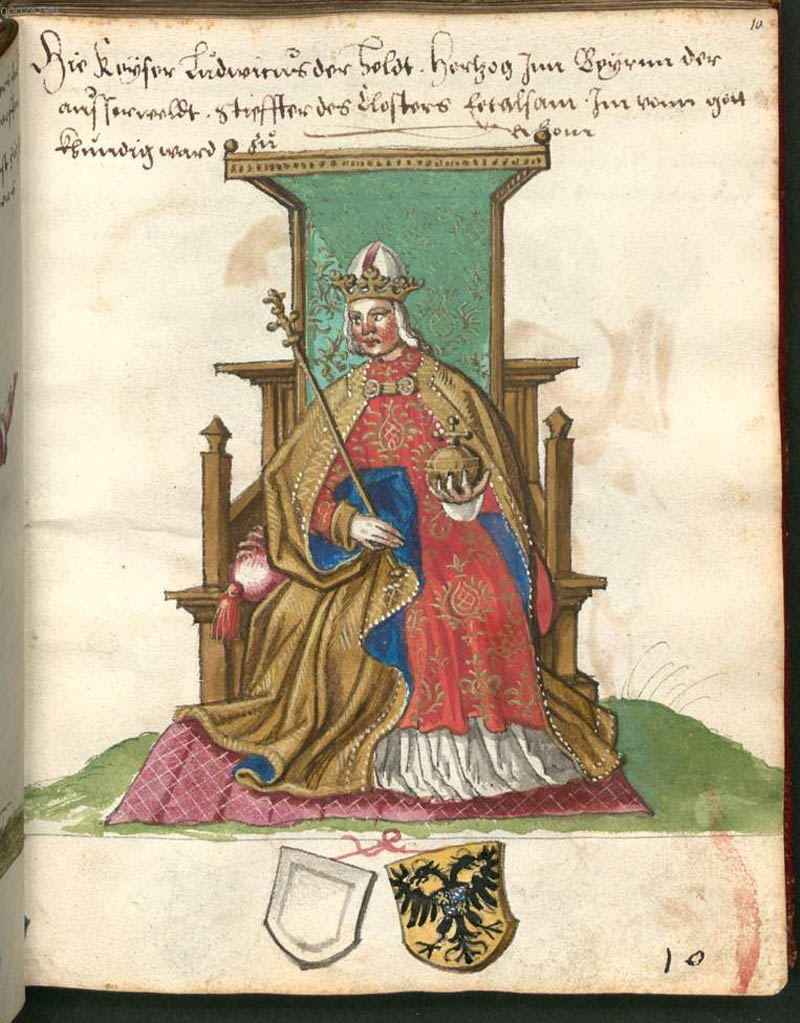 10
Hie Keyser Ludwicus der Holdt. Hertzog Inn Bayrnn der
ausserweldt. Stieffter des Closters Eetalsam. Im vonn gott
khundig ward zu
10